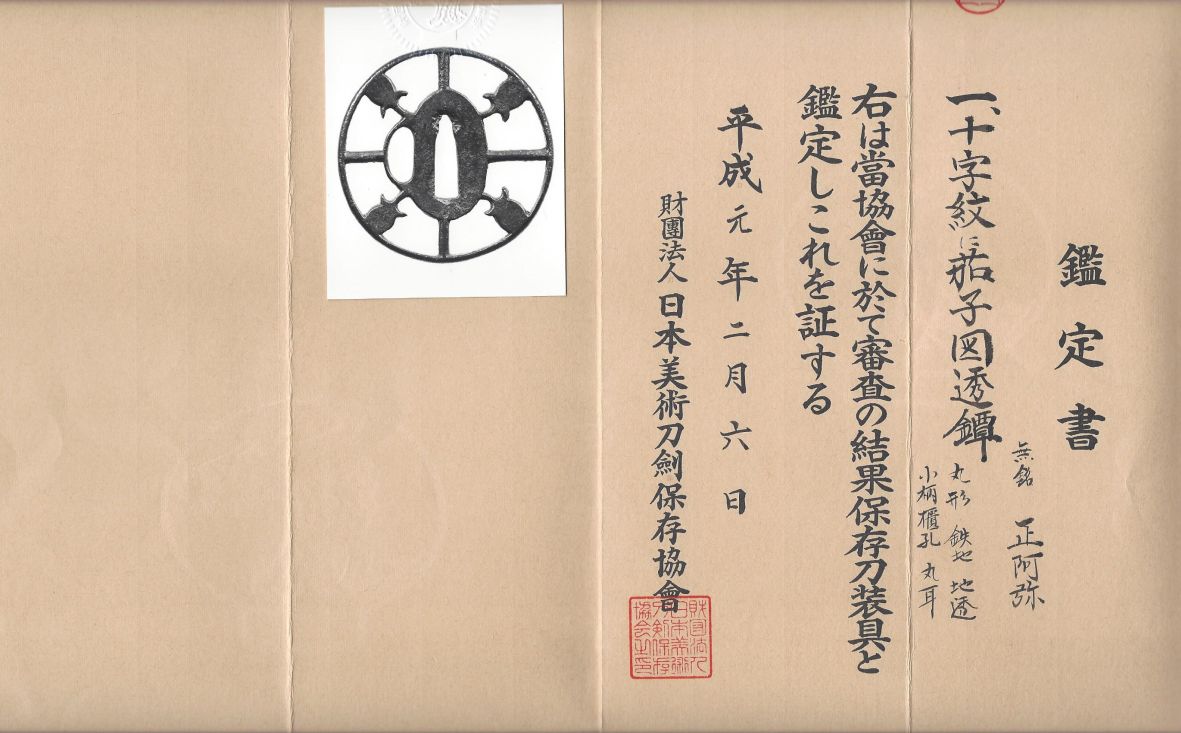 鑑定書
一、十字紋に茄子図透鐔
無銘 正阿弥
丸形 鉄地 地透
小柄櫃孔 丸耳
右は當協會に於て審査の結果保存刀装具と
鑑定しこれを証する
平成元年二月六日
財團法人日本美術刀劍保存協會
財団法人
日本美術
刀剣保存
協会之印